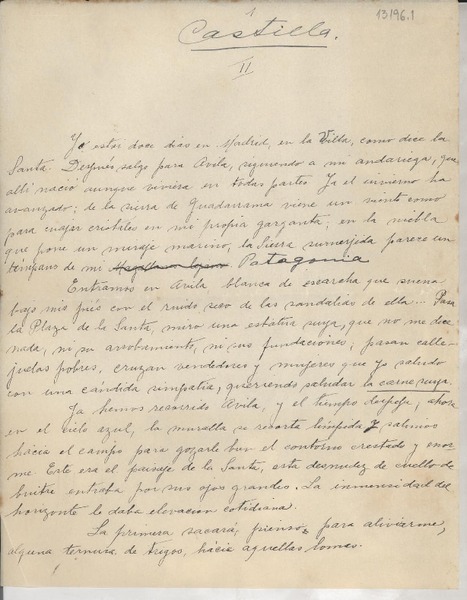 1
13196.1
Castilla.
II
Yo estar doce días en Madrid, en la Villa, como dice la
Santa. Después salgo para Avila, siguiendo a mi andariega, que
allí nació aunque viviera en todas partes. Ya el invierno ha
avanzado; de la sierra de Guadarrama viene un viento como
para cuajar cristales en mi propia garganta; en la niebla
que pone un miraje marino, la Sierra sumerjida parece un
témpano de mi Patagonia
Entramos en Avila blanca de escarcha que suena
bajo mis pies con el ruido seco de las sandalias de ella... Pasa
la Plaza de la Santa, miro una estatua suya, que no me dice
nada, ni su arrobamiento, ni sus fundaciones; pasan calle-
juelas pobres, cruzan vendedores y mujeres que yo saludo
con una cándida simpatía, queriendo saludar la carne suya.
Ya hemos recorrido Avila, y el tiempo despeja, ahora
en el cielo azul, la muralla se recorta límpida y salimos
hácia el campo para gozarle bien el contorno crestado y enor-
me. Este era el paisaje de la Santa, esta desnudez de cuello de
buitre entraba por sus ojos grandes. La inmensidad del
horizonte le daba elevación cotidiana.
La primera sacaría, pienso, para aliviarme,
alguna ternura de trigos, hácia aquellas lomas.